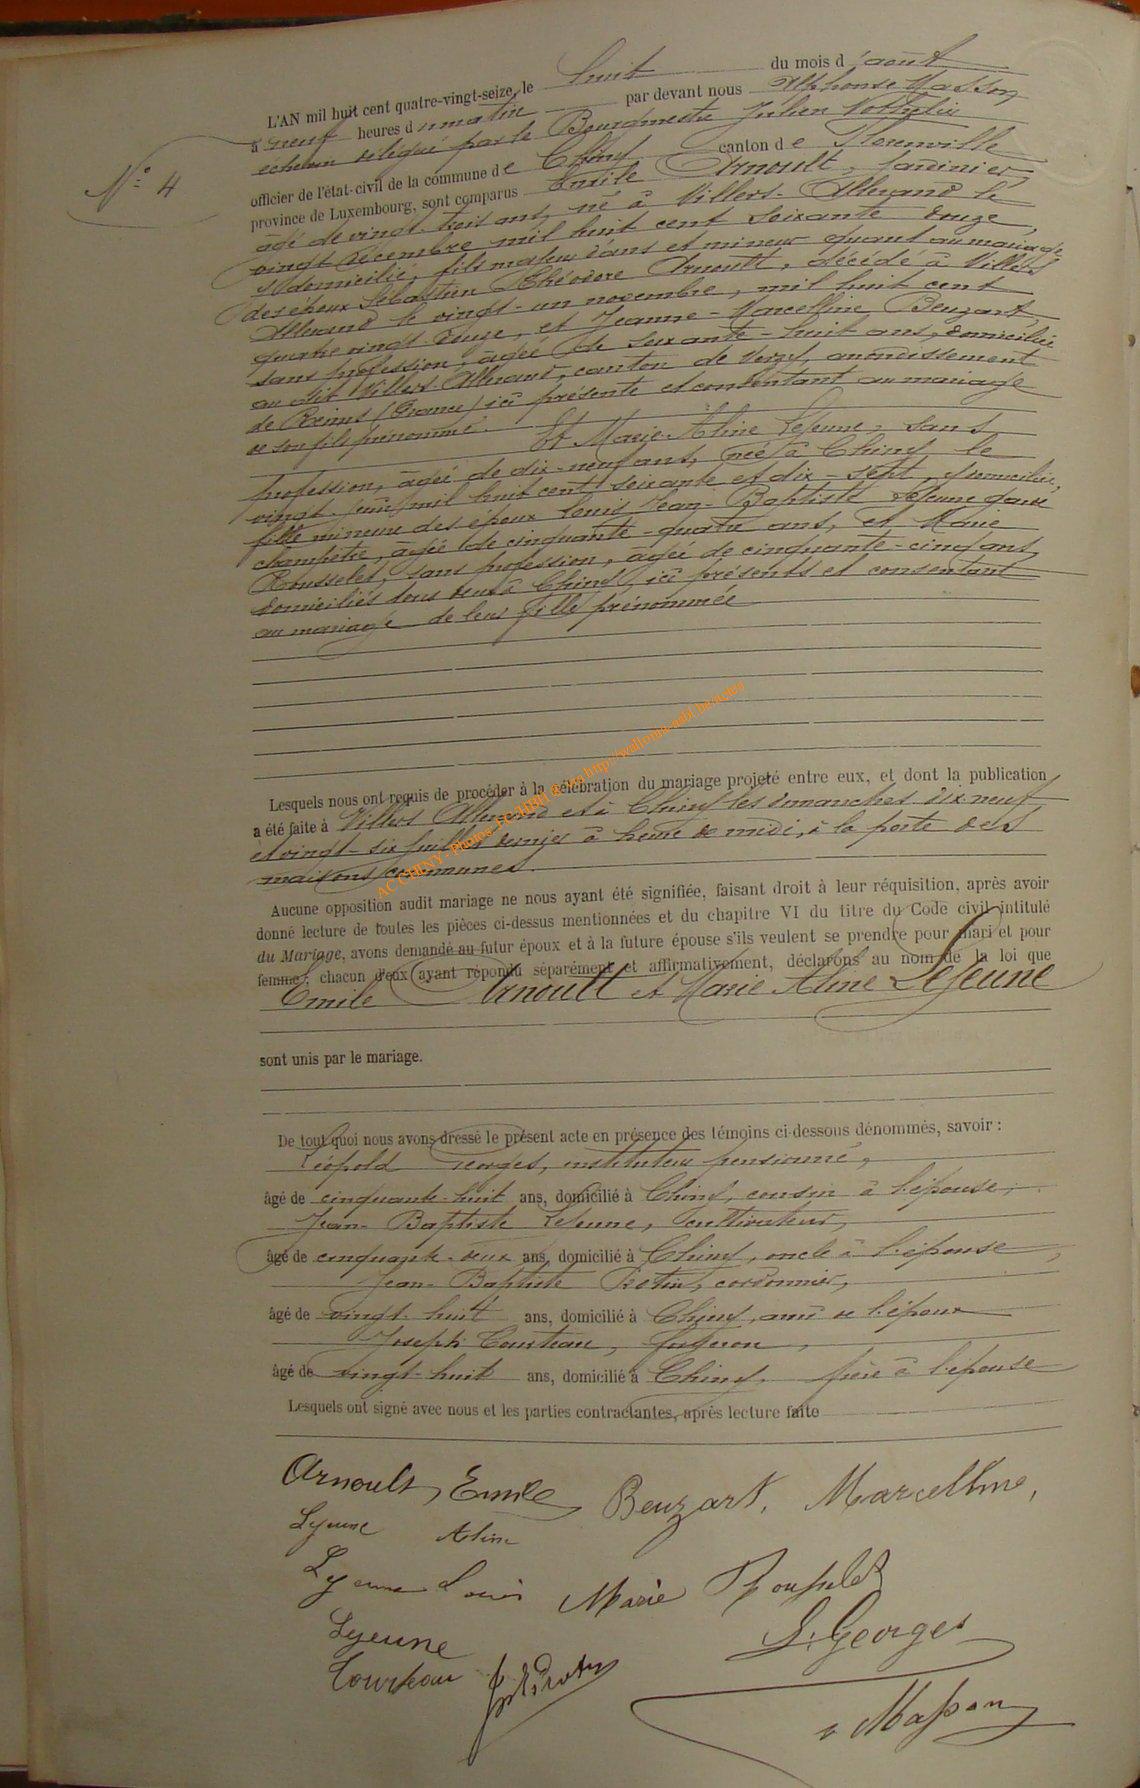 N° 4
L'AN mil huit cent quatre-vingt-seize, le huit du mois d'août
à neuf heures du matin par devant nous Alphonse Masson
échevin délégué par le Bourgmestre Julien
officier de l'état-civil de la commune de Chiny canton de Florenville
province de Luxembourg, sont comparus Emile Arnoult, jardinier,
âgé de vingt-trois ans, né à Villers-Allerand le
vingt décembre mil huit cent soixante douze,
y domicilié, fils majeur d'ans et mineur quant au mariage
des époux Sébastien Théodore Arnoult, décédé à Villers
Allerand le vingt-un novembre, mil huit cent
quatre vingt-douze, et Jeanne-Marcelline Beuzart,
sans profession, âgée de soixante-huit ans, domiciliée
au dit Villers-Allerand, canton de Verzy, arrondissement
de Reims (France) ici présente et consentant au mariage
de son fils prénommé.
Et Marie-Aline Lejeune, sans
profession, âgée de dix-neuf ans, née à Chiny le
vingt juin mil huit cent soixante et dix-sept, y domiciliée,
fille mineure des époux Louis Jean-Baptiste Lejeune garde
champêtre, âgé de cinquante-quatre ans, et Marie
Rousselet, sans profession, âgée de cinquante-cinq ans,
domiciliés tous deux à Chiny, ici présents et consentant
au mariage de leur fille prénommée
Lesquels nous ont requis de procéder à la célébration du mariage projeté entre eux, et dont la publication
a été faite à Villers Allerand et à Chiny les dimanches dix-neuf
et vingt-six juillet dernier à heure de midi, à la porte des
maisons communes.
Aucune opposition audit mariage ne nous ayant été signifiée, faisant droit à leur réquisition, après avoir
donné lecture de toutes les pièces ci-dessus mentionnées et du chapitre VI du titre du Code civil intitulé
du Mariage, avons demandé au futur époux et à la future épouse s'ils veulent se prendre pour mari et pour
femme; chacun d'eux ayant répondu séparément et affirmativement, déclarons au nom de la loi que
Emile Arnoult et Marie Aline Lejeune
sont unis par le mariage.
De tout quoi nous avons dressé le présent acte en présence des témoins ci-dessous dénommés, savoir :
Léopold Georges, instituteur pensionné,
âgé de cinquante-huit ans, domicilié à Chiny, cousin à l'épouse,
Jean-Baptiste Lejeune, cultivateur,
âgé de cinquante-deux ans, domicilié à Chiny, oncle à l'épouse,
Jean-Baptiste Protin, cordonnier,
âgé de vingt-huit ans, domicilié à Chiny, ami de l'époux
Joseph Courteau,
âgé de vingt-huit ans, domicilié à Chiny, frère à l'épouse
Lesquels ont signé avec nous et les parties contractantes, après lecture faite
Arnoult, Emile Beuzart, Marcelline,
Lejeune Aline
Lejeune Louis Marie Rousselet
Lejeune L. Georges
Courteau
A Masson